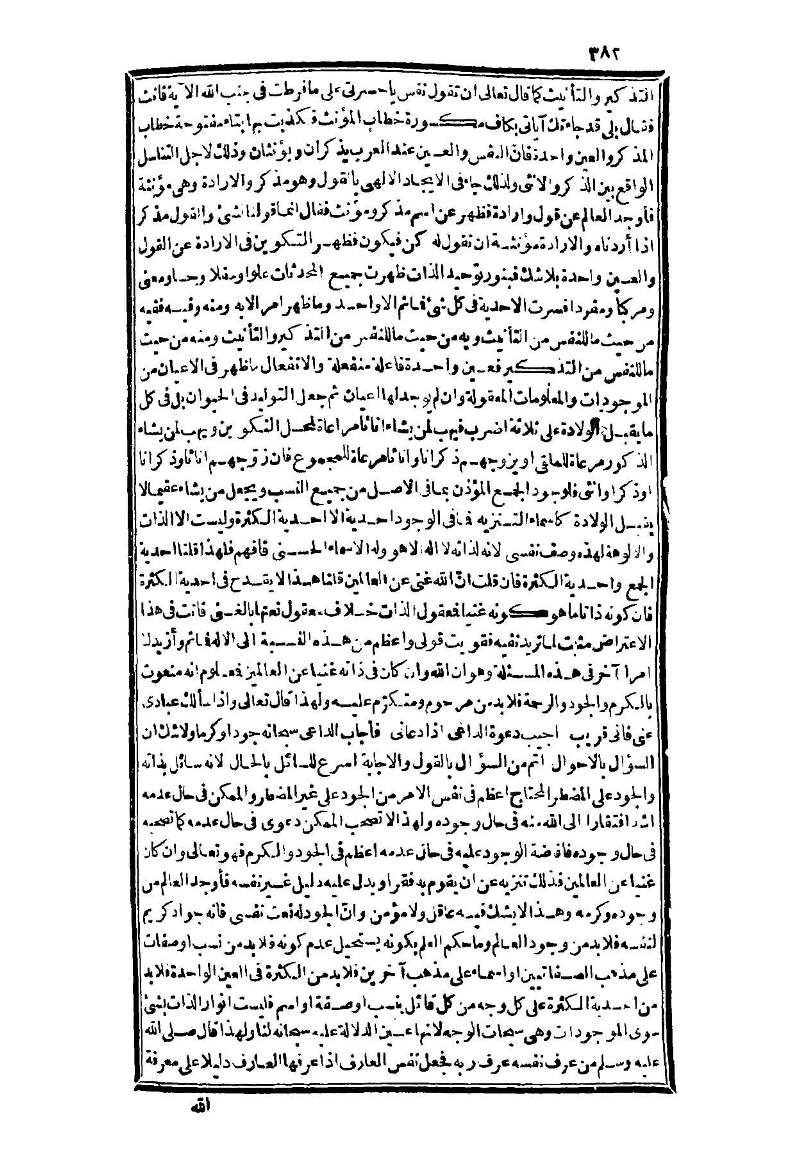 ٣٨٢
التذكير والتأنيث كما قال تعالى ان تقول نفس يا حسرتى على ما فرطت فى جنب الله الآية فانث
فقال بلى قد جاءتك آياتى بكاف مكسورة خطاب المؤنث فكذبت بها بتاء مفتوحة خطاب
المذكر والعين واحدة فان النفس والعين عند العرب يذكران ويؤنثان وذلك لاجل التناسل
الواقع بين الذكر والانثى ولذلك جاء فى الايجاد الالهى بالقول وهو مذكر والارادة وهى مؤنثة
فأوجد العالم عن قول وارادة فظهر عن اسم مذكر ومؤنث فقال انما قولنا لشئ والقول مذكر
اذا أردناه والارادة مؤنثة ان نقول له كن فيكون فظهر التكوين فى الارادة عن القول
والعين واحدة بلا شك فبنور توحيد الذات ظهرت جميع المحدثات علوا وسفلا وحسا ومعنى
ومركبا ومفردا فسرت الاحدية فى كل شئ فما ثم الا واحد وما ظهر امر الا به ومنه وفيه ففيه
من حيث ما للنفس من التأنيث وبه من حيث ما للنفس من التذكير والتأنيث ومنه من حيث
ما للنفس من التذكير فعين واحدة فاعلة منفعلة والانفعال ما ظهر فى الاعيان من
الموجودات والمعلومات المعقولة وان لم يوجد لها اعيان ثم جعل التوليد فى الحيوان بل فى كل
ما يقبل الولادة على ثلاثة اضرب فيهب لمن يشاء اناثا مراعاة لمحل التكوين ويهب لمن يشاء
الذكور مراعاة للملقى او يزوجهم ذكرانا واناثا مراعاة للمجموع فان زوجهم اناثا وذكرانا
او ذكرا وانثى فلوجود الجمع المؤذن بما فى الاصل من جميع النسب ويجعل من يشاء عقيما لا
يقبل الولادة كاسماء التنزيه فما فى الوجود احدية الا احدية الكثرة وليست الا الذات
والالوهة لهذه وصف نفسى لانه لذاته لا اله الا هو وله الاسماء الحسنى فافهم فلهذا قلنا احدية
الجمع واحدية الكثرة فان قلت ان الله غنى عن العالمين قلنا هذا لا يقدح فى احدية الكثرة
فان كونه ذاتا ما هو كونه غنيا فمعقول الذات خلاف معقول نعتها بالغنى فانت فى هذا
الاعتراض مثبت لما تريد نفيه فقويت قولى واعظم من هذه النسبة الى الاله فما ثم وأزيدك
امرا آخر فى هذه المسئلة وهو ان الله وان كان فى ذاته غنيا عن العالمين فمعلوم انه منعوت
بالكرم والجود والرحمة فلا بد من مرحوم ومتكرم عليه ولهذا قال تعالى واذا سألك عبادى
عنى فانى قريب اجيب دعوة الداعى اذا دعانى فأجاب الداعى سبحانه جودا وكرما ولا شك ان
السؤال بالاحوال اتم من السؤال بالقول والاجابة اسرع للسائل بالحال لانه سائل بذاته
والجود على المضطر المحتاج اعظم فى نفس الامر من الجود على غير المضطر والممكن فى حال عدمه
اشد افتقارا الى الله منه فى حال وجوده ولهذا لا تصحب الممكن دعوى فى حال عدمه كما تصحبه
فى حال وجوده فافاضة الوجود عليه فى حال عدمه اعظم فى الجود والكرم فهو تعالى وان كان
غنيا عن العالمين فذلك تنزيه عن ان يقوم به فقر او يدل عليه دليل غير نفسه فأوجد العالم من
وجوده وكرمه وهذا لا يشك فيه عاقل ولا مؤمن وان الجود له نعت نفسى فانه جواد كريم
لنفسه فلا بد من وجود العالم وما حكم العلم بكونه يستحيل عدم كونه فلا بد من نسب او صفات
على مذهب الصفاتيين او اسماء على مذهب آخرين فلا بد من الكثرة فى العين الواحدة فلا بد
من احدية الكثرة على كل وجه من كل قائل بنسب او صفة او اسم فليست انوار الذات بشئ
سوى الموجودات وهى سبحات الوجه لانها عين الدلالة عليه سبحانه لنا ولهذا قال صلى الله
عليه وسلم من عرف نفسه عرف ربه فجعل نفس العارف اذا عرفها العارف دليلا على معرفة
الله